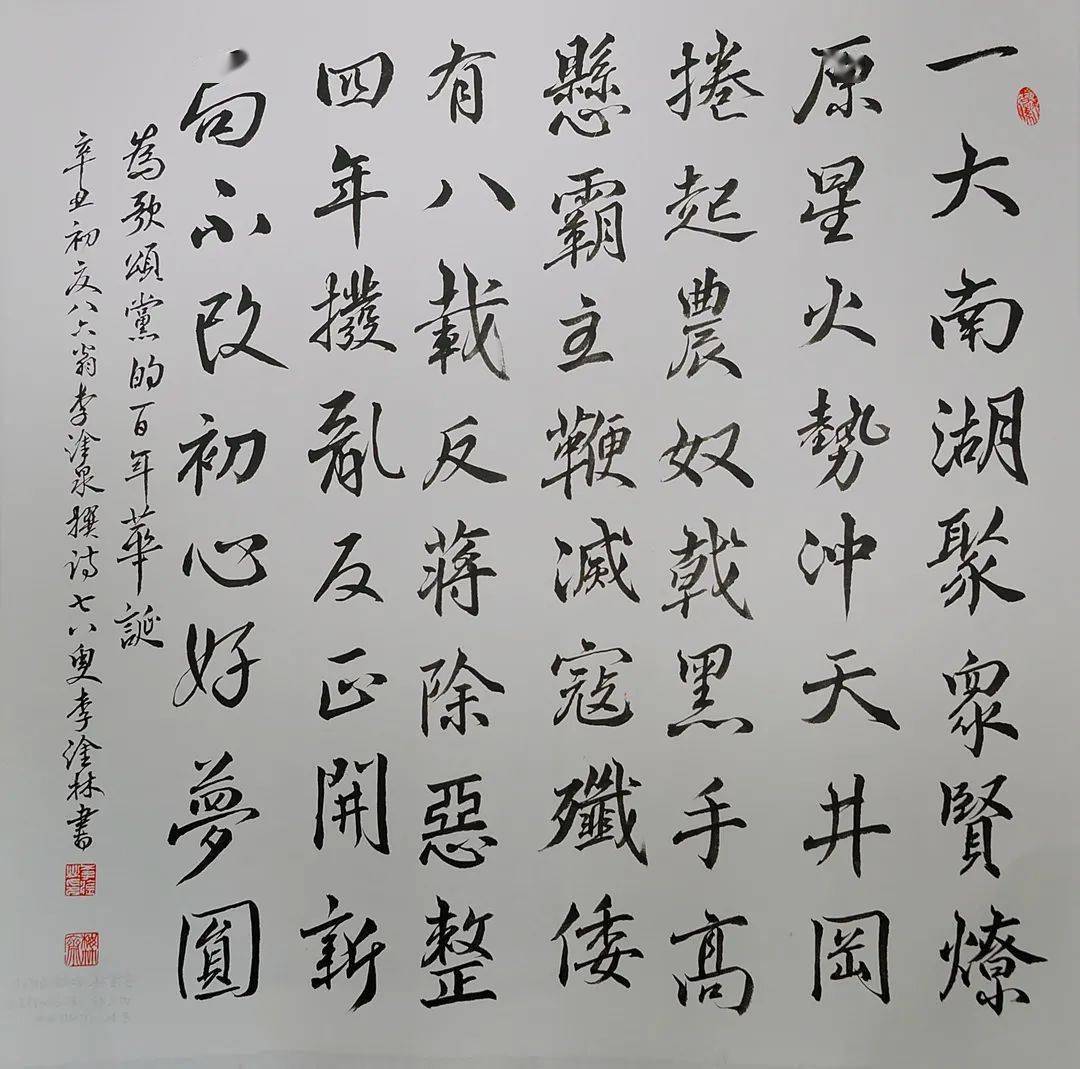 一大南湖聚眾賢燎
原星火勢沖天井岡
捲起農奴戟黑手高
懸霸主鞭滅寇殲倭
有八載反蔣除惡整
四年撥亂反正開新
向不改初心好夢圓
為歌頌黨的百年華誕
辛丑初夏八六翁李塗泉撰詩七八叟李塗林書